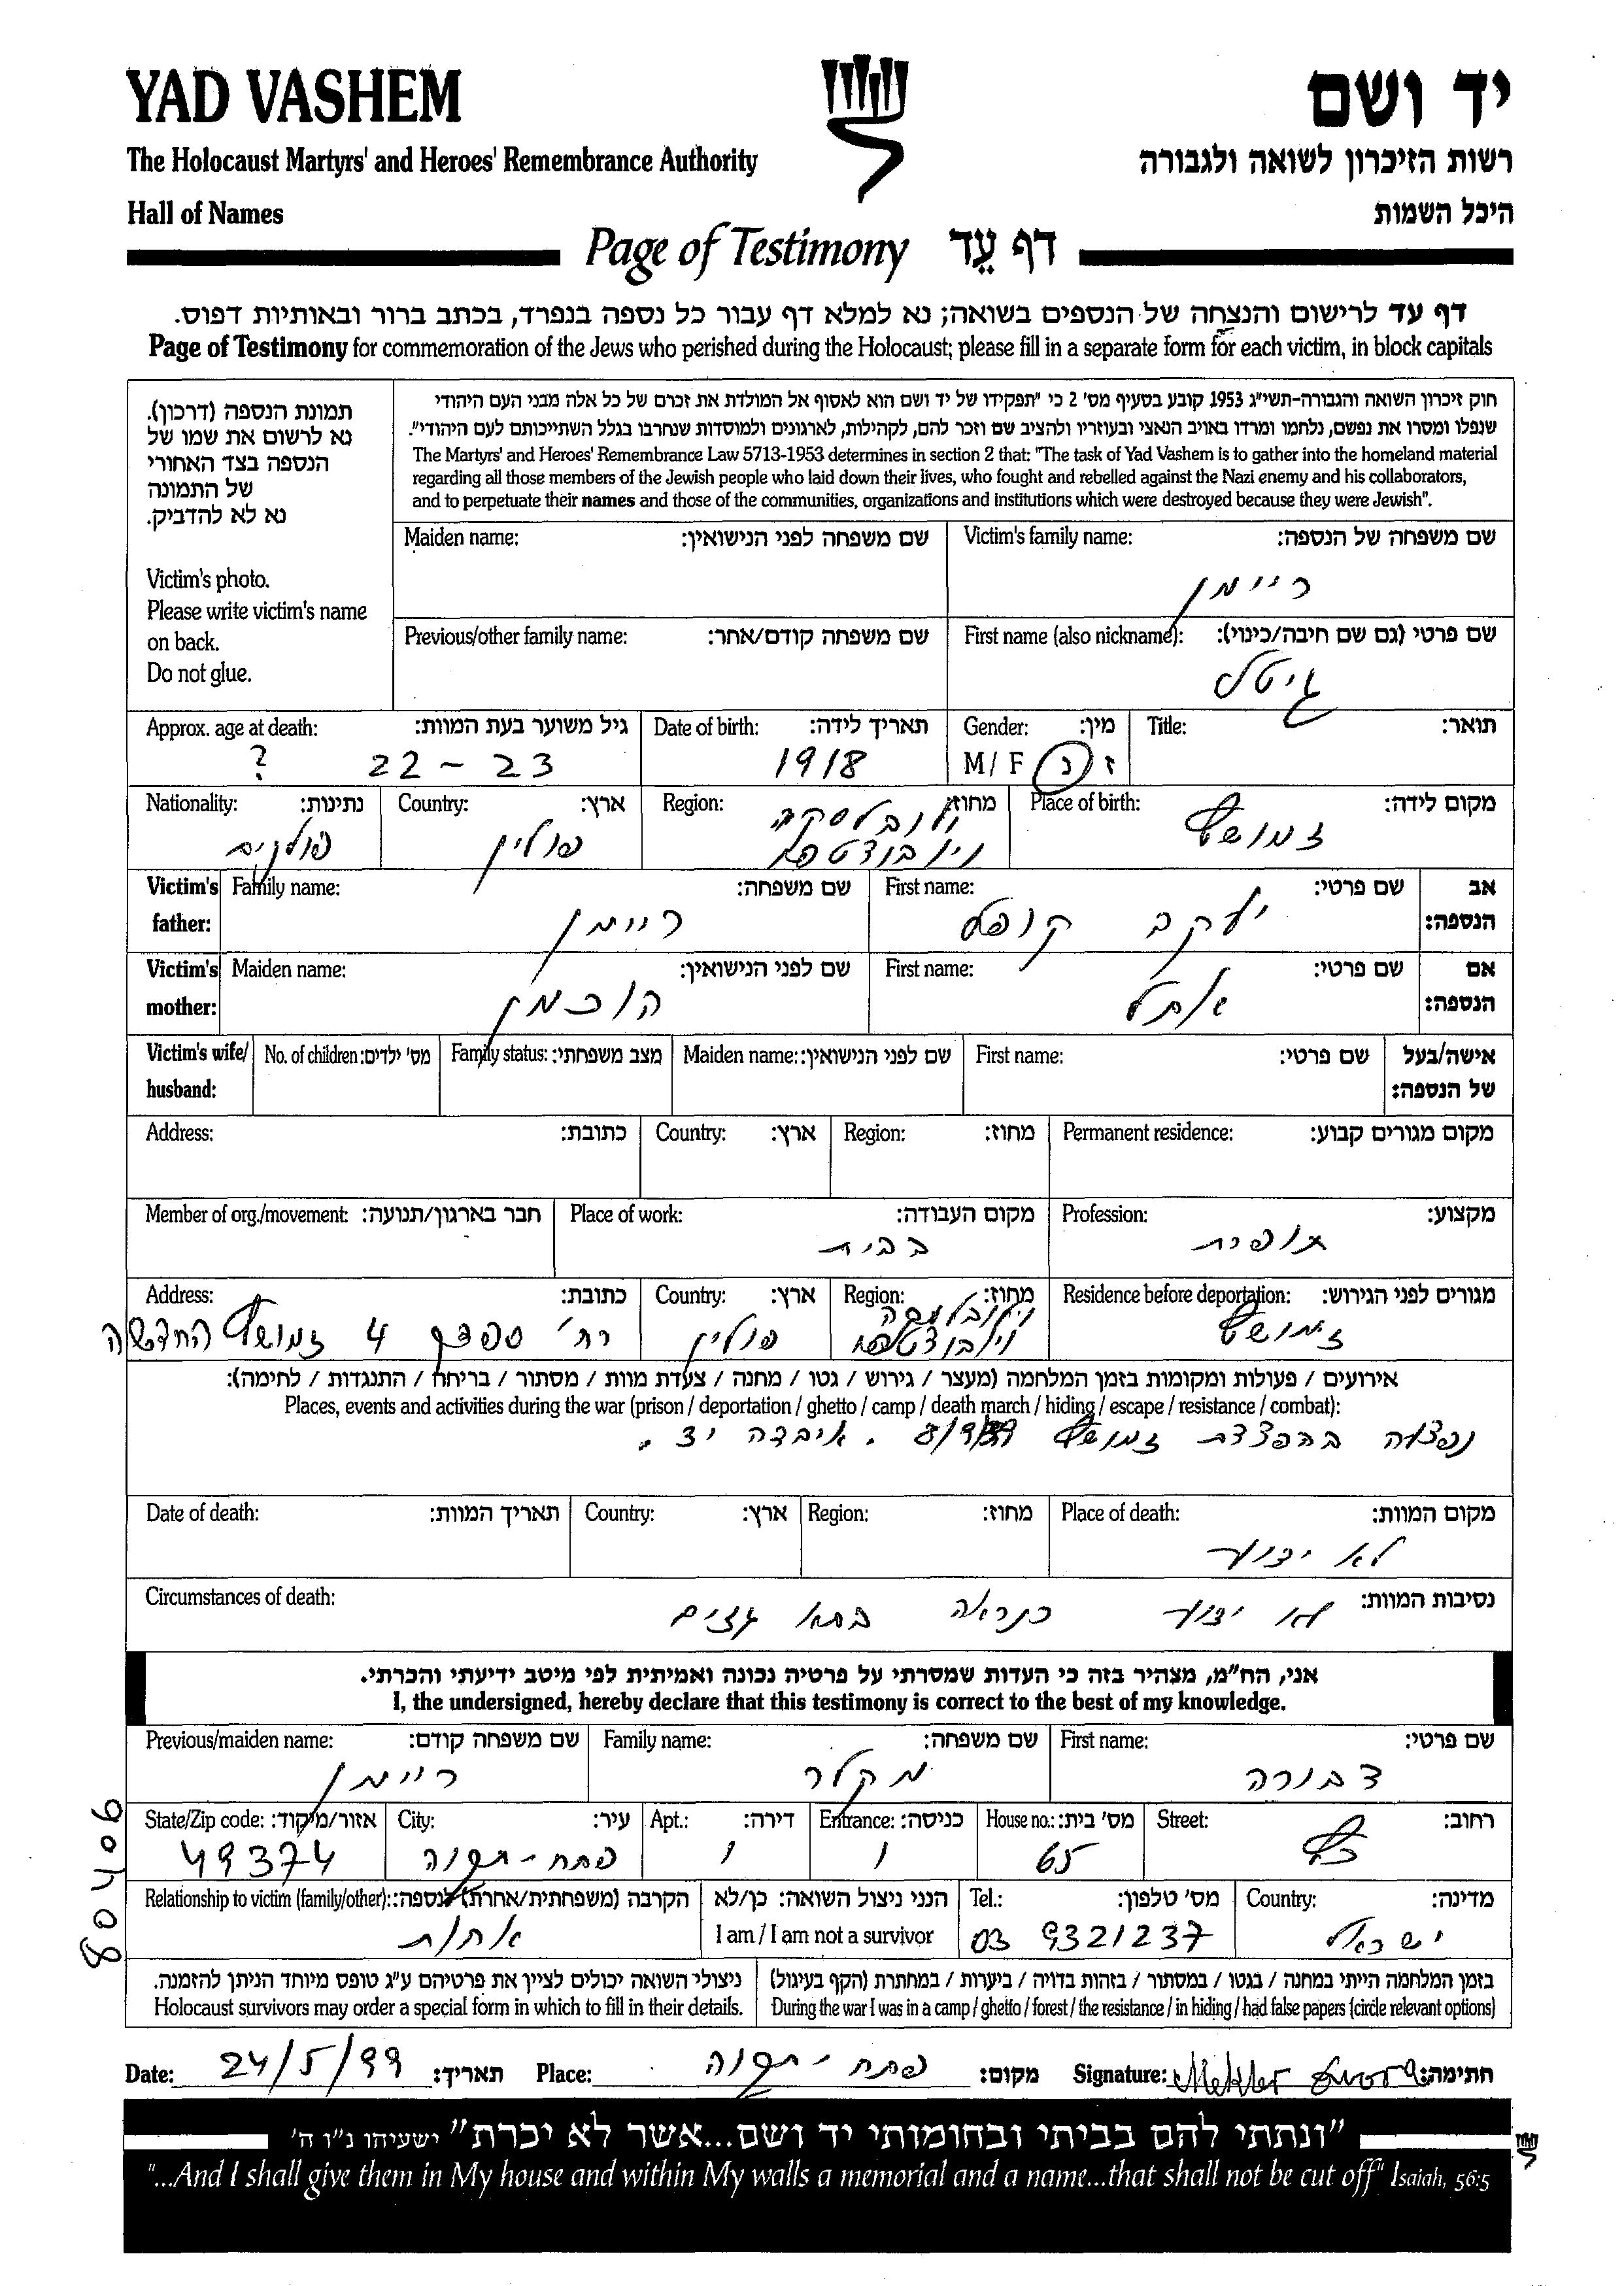 YAD VASHEM
יד ושם
The Holocaust Martyrs' and Heroes' Remembrance Authority
רשות הזיכרון לשואה ולגבורה
Hall of Names
היכל השמות
Page of Testimony דף עֵד
דף עד לרישום והנצחה של הנספים בשואה; נא למלא דף עבור כל נספה בנפרד, בכתב ברור ובאותיות דפוס.
Page of Testimony for commemoration of the Jews who perished during the Holocaust; please fill in a separate form for each victim, in block capitals
תמונת הנספה (דרכון).
נא לרשום את שמו של
הנספה בצד האחורי
של התמונה
נא לא להדביק.
Victim's photo.
Please write victim's name
on back.
Do not glue.
חוק זיכרון השואה והגבורה-תשי"ג 1953 קובע בסעיף מס' 2 כי "תפקידו של יד ושם הוא לאסוף אל המולדת את זכרם של כל אלה מבני העם היהודי
שנפלו ומסרו את נפשם, נלחמו ומרדו באויב הנאצי ובעוזריו ולהציב שם וזכר להם, לקהילות, לארגונים ולמוסדות שנחרבו בגלל השתייכותם לעם היהודי".
The Martyrs' and Heroes' Remembrance Law 5713-1953 determines in section 2 that: "The task of Yad Vashem is to gather into the homeland material
regarding all those members of the Jewish people who laid down their lives, who fought and rebelled against the Nazi enemy and his collaborators,
and to perpetuate their names and those of the communities, organizations and institutions which were destroyed because they were Jewish".
Maiden name: שם משפחה לפני הנישואין: Victim's family name: שם משפחה של הנספה:
ריימן
Previous/other family name: שם משפחה קודם/אחר: First name (also nickname): שם פרטי (גם שם חיבה/כינוי):
גיטל
Approx. age at death: גיל משוער בעת המוות: Date of birth: תאריך לידה: Gender: מין: Title: תואר:
? 22 - 23 1918 M/ F ז / נ
Nationality: נתינות: Country: ארץ: Region: מחוז: Place of birth: מקום לידה:
פולין זמושץ
Victim's father: Family name: שם משפחה: First name: שם פרטי: אב הנספה:
ריימן יעקב קופל
Victim's mother: Maiden name: שם לפני הנישואין: First name: שם פרטי: אם הנספה:
הוכמן אתל
Victim's wife/ husband: No. of children: מס' ילדים: Family status: מצב משפחתי: Maiden name: שם לפני הנישואין: First name: שם פרטי: אישה/בעל של הנספה:
Address: כתובת: Country: ארץ: Region: מחוז: Permanent residence: מקום מגורים קבוע:
Member of org./movement: חבר בארגון/תנועה: Place of work: מקום העבודה: Profession: מקצוע:
בבית תופרת
Address: כתובת: Country: ארץ: Region: מחוז: Residence before deportation: מגורים לפני הגירוש:
רח' 4 זמושץ החדשה פולין זמושץ
אירועים / פעולות ומקומות בזמן המלחמה (מעצר / גירוש / גטו / מחנה / צעדת מוות / מסתור / בריחה / התנגדות / לחימה):
Places, events and activities during the war (prison / deportation / ghetto / camp / death march / hiding / escape / resistance / combat):
נפצעה בהפצצת זמושץ . איבדה יד .
Date of death: תאריך המוות: Country: ארץ: Region: מחוז: Place of death: מקום המוות:
לא ידוע
Circumstances of death: נסיבות המוות:
לא ידוע כנראה בתא גזים
אני, הח"מ, מצהיר בזה כי העדות שמסרתי על פרטיה נכונה ואמיתית לפי מיטב ידיעתי והכרתי.
I, the undersigned, hereby declare that this testimony is correct to the best of my knowledge.
Previous/maiden name: שם משפחה קודם: Family name: שם משפחה: First name: שם פרטי:
ריימן מקלר דבורה
State/Zip code: אזור/מיקוד: City: עיר: Apt.: דירה: Entrance: כניסה: House no.: מס' בית: Street: רחוב:
49374 פתח-תקוה 1 1 65
Relationship to victim (family/other): הקרבה (משפחתית/אחרת) לנספה: הנני ניצול השואה: כן/לא Tel.: מס' טלפון: Country: מדינה:
אחות I am / I am not a survivor 03 9321237 ישראל
ניצולי השואה יכולים לציין את פרטיהם ע"ג טופס מיוחד הניתן להזמנה.
Holocaust survivors may order a special form in which to fill in their details.
בזמן המלחמה הייתי במחנה / בגטו / במסתור / בזהות בדויה / ביערות / במחתרת (הקף בעיגול)
During the war I was in a camp / ghetto / forest / the resistance / in hiding / had false papers (circle relevant options)
80406
Date: 24/5/99 תאריך: Place: פתח-תקוה מקום: Signature: Mekler Dvora חתימה:
"ונתתי להם בביתי ובחומותי יד ושם...אשר לא יכרת" ישעיהו נ"ו ה'
"...And I shall give them in My house and within My walls a memorial and a name...that shall not be cut off" Isaiah, 56:5